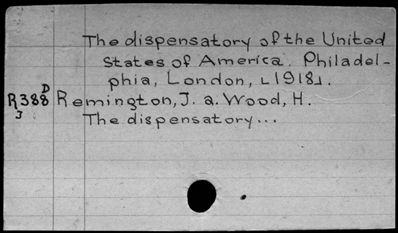 The dispensatory of the United
States of America. Philadel-
phia, London, ⌊1918⌋.
D
R388 Remington, J. a. Wood, H.
J
The dispensatory...